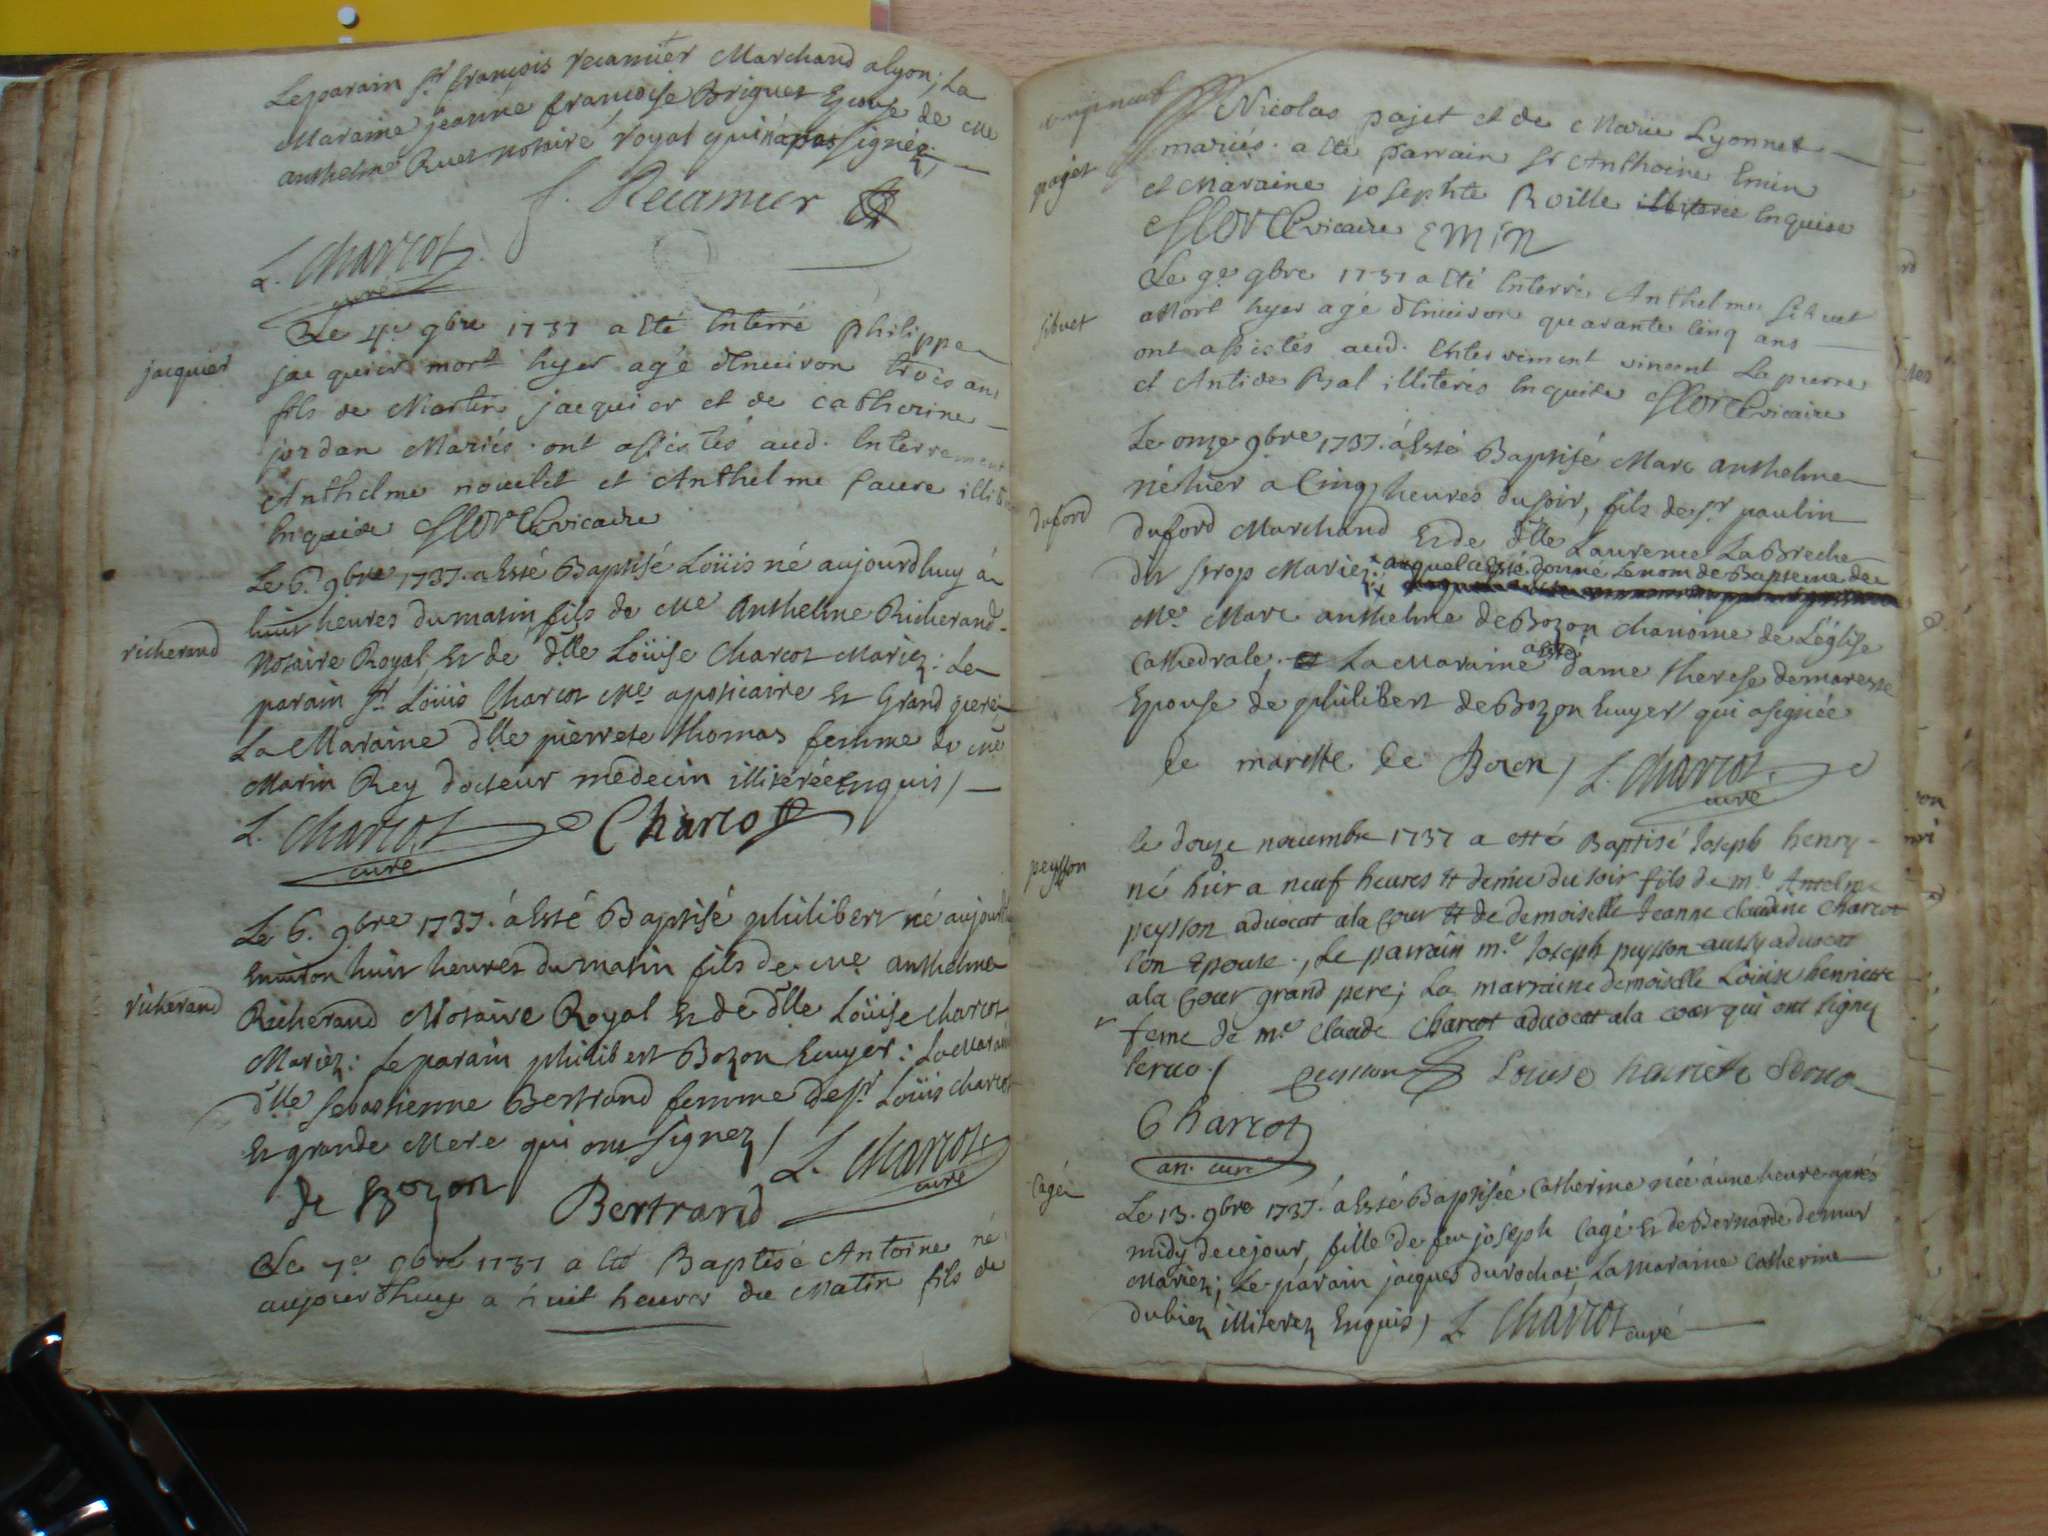 Le parain sr. françois recamier Marchand a lyon; La
Maraine jeanne françoise Briguet Epouse de me
anthelme Ruet notaire royal qui n'a pas signée
f. Recamier
L. Charcot
curé
Le 4e 9bre 1737 a Eté Enterré philippe
jacquier
jacquier mort hyer agé d'Enuiron trois ans
fils de Martin jacquier et de catherine
jordan Mariés. ont assistés aud. Enterrement
Anthelme nouelet et Anthelme faure
Enquise vicaire
Le 6. 9bre 1737. a Esté Baptisé Loüis né aujourdhuy à
huit heures du matin fils de Me Anthelme Richerand
richerand
Notaire Royal Et de dlle Loüise Charcot Mariez: Le
parain sr. Loüis Charcot Me apoticaire Et Grand pere;
La Maraine dlle pierrete thomas femme de me
Marin Rey docteur medecin illiterée Enquis/
L. Charcot Charcot
curé
Le 6. 9bre 1737. à Esté Baptisé philibert né aujourdhuy
Enuiron huit heures du matin fils de me anthelme
richerand
Richerand Notaire Royal Et de dlle Loüise charcot
Mariez: Le parain philibert Bozon Ecuyer: La Maraine
dlle sebastienne Bertrand femme de sr. Loüis charcot
Et grande Mere qui ont signez/ L. Charcot
curé
de Bozon Bertrand
Le 7e 9bre 1737 a Eté Baptisé Antoine né
aujourdhuy a huit heures du Matin fils de
Nicolas pajet et de Marie Lyonnet
pajet
mariés. a été parrain sr Anthoine Emin
et Maraine josephte Roille illiterée Enquise
vicaire EMIN
Le 9e 9bre 1737 a Eté Enterré Anthelme sibuet
sibuet
Mort hyer agé d'Enuiron quarante cinq ans
ont assistés aud. Enterrement vincent Lapierre
et Antide Bal illiterés Enquise vicaire
Le onze 9bre 1737. à Esté Baptisé Marc anthelme
né hier a Cinq heures du soir, fils de sr paulin
duford
duford Marchand Et de dlle Laurence La Breche
dit strop Mariez: auquel a Esté donné Le nom de Bapteme de
Me Marc anthelme de Bozon chanoine de L'église
Cathedrale. La Maraine a Esté dame therese demareste
Epouse de philibert de Bozon Ecuyer/ qui a signée
de mareste de Bozon/ L. Charcot
curé
le douze nouembre 1737 a esté Baptisé Joseph henry
peysson
né hier a neuf heures et demie du soir fils de m.e Antelme
peysson aduocat a la Cour et de demoiselle Jeanne claudine Charcot
son Epouse., Le parrain m.e Joseph peysson aussy aduocat
a la Cour grand pere; La marraine demoiselle Loüise henriette
feme de m.e Claude Charcot aduocat a la cour qui ont signez
peysson Louise henriette
Charcot
an. curé
Cagé
Le 13. 9bre 1737. à Esté Baptisée Catherine née à une heure après
midy de ce jour, fille de feu joseph Cagé Et de Bernarde demur
Mariez; Le parain jacques durochat; La Maraine Catherine
dubiez illiterez Enquis/ L. Charcot curé